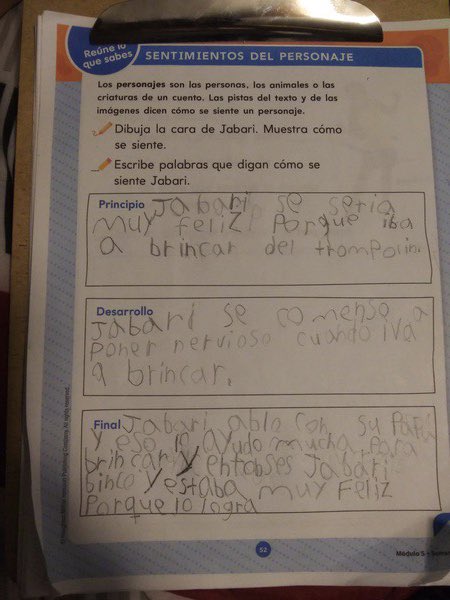 Reúne lo
que sabes
SENTIMIENTOS DEL PERSONAJE
Los personajes son las personas, los animales o las
criaturas de un cuento. Las pistas del texto y de las
imágenes dicen cómo se siente un personaje.
Dibuja la cara de Jabari. Muestra cómo
se siente.
Escribe palabras que digan cómo se
siente Jabari.
Principio Jabari se seria
muy feliz porque iba
a brincar del trompolin.
Desarrollo
Jabari se comenso a
poner nervioso cuando iva
a brincar.
Final Jabari ablo con su papá
y eso lo ayudo mucha para
brincar y entobses Jabari
binco y estaba muy feliz
porque lo logra
52
Módulo 5
All rights reserved.